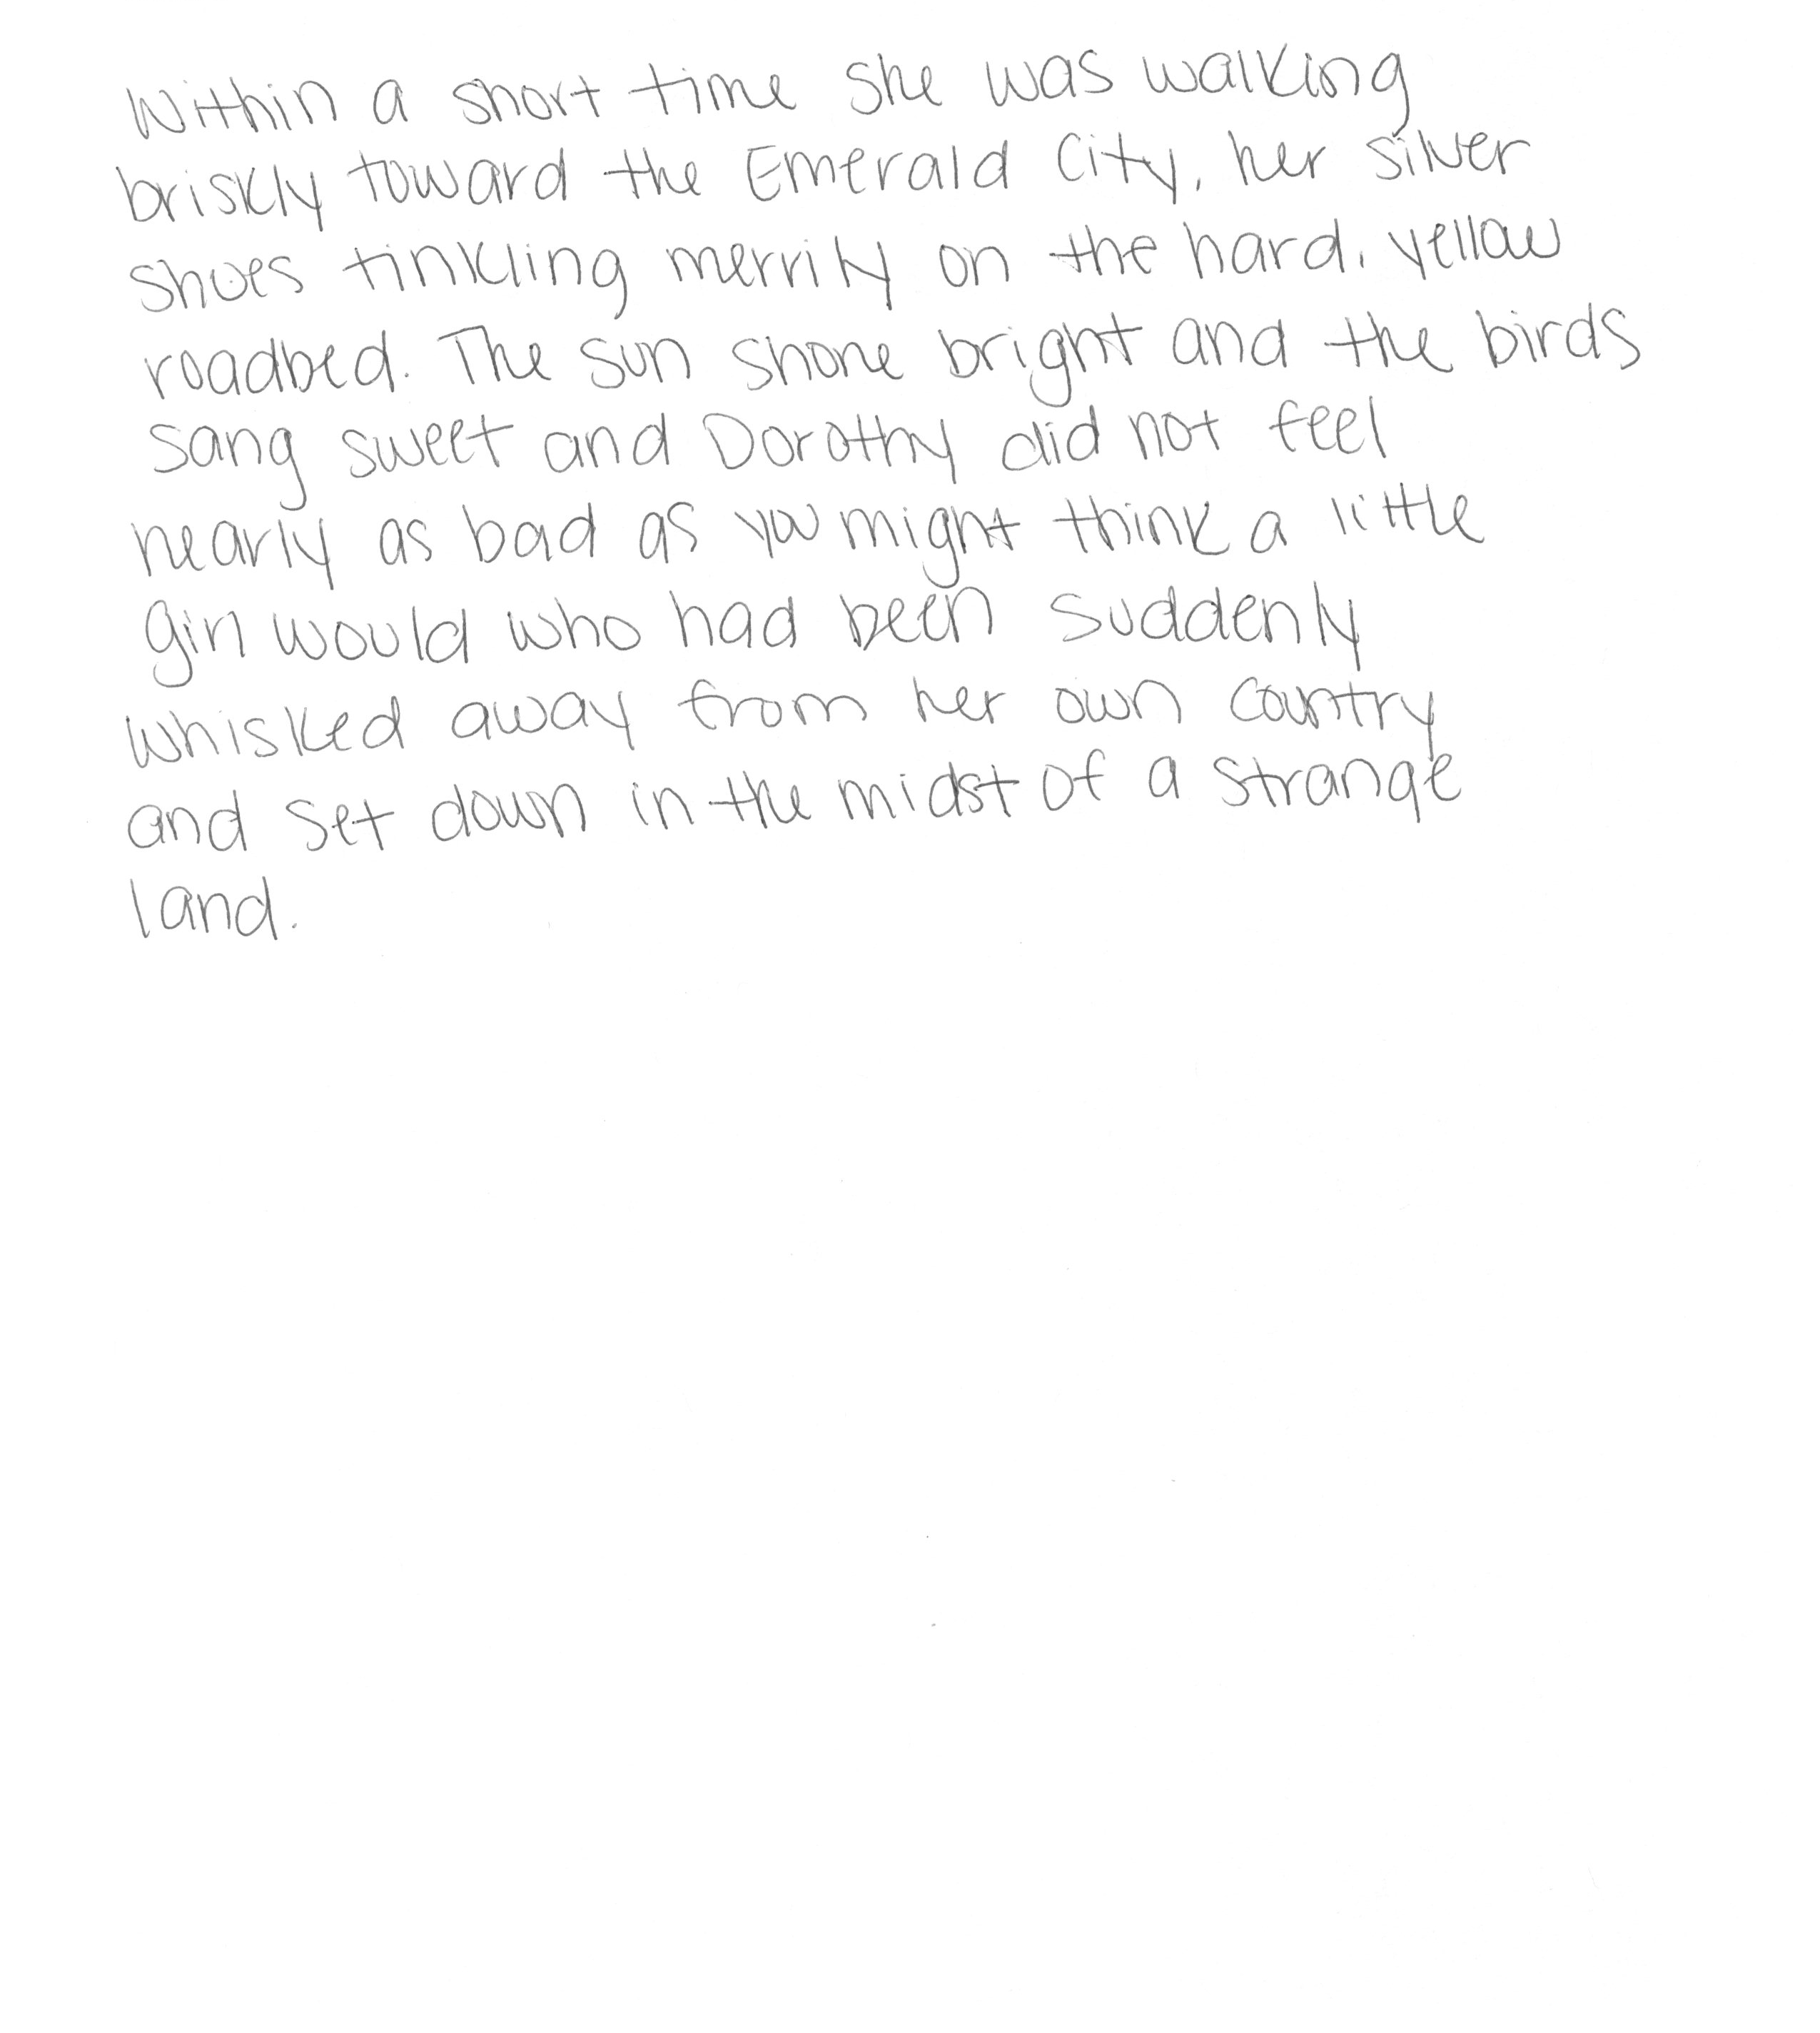 Within a short time she was walking
briskly toward the Emerald City, her silver
shoes tinkling merrily on the hard, yellow
roadbed. The sun shone bright and the birds
sang sweet and Dorothy did not feel
nearly as bad as you might think a little
girl would who had been suddenly
whisked away from her own country
and set down in the midst of a strange
land.